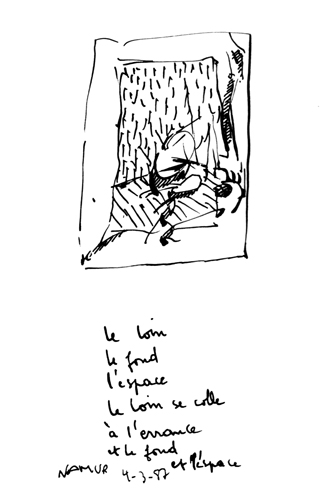 le loin
le fond
l'espace
le loin se colle
à l'errance
et le fond
et l'espace
NAMUR 4-3-87